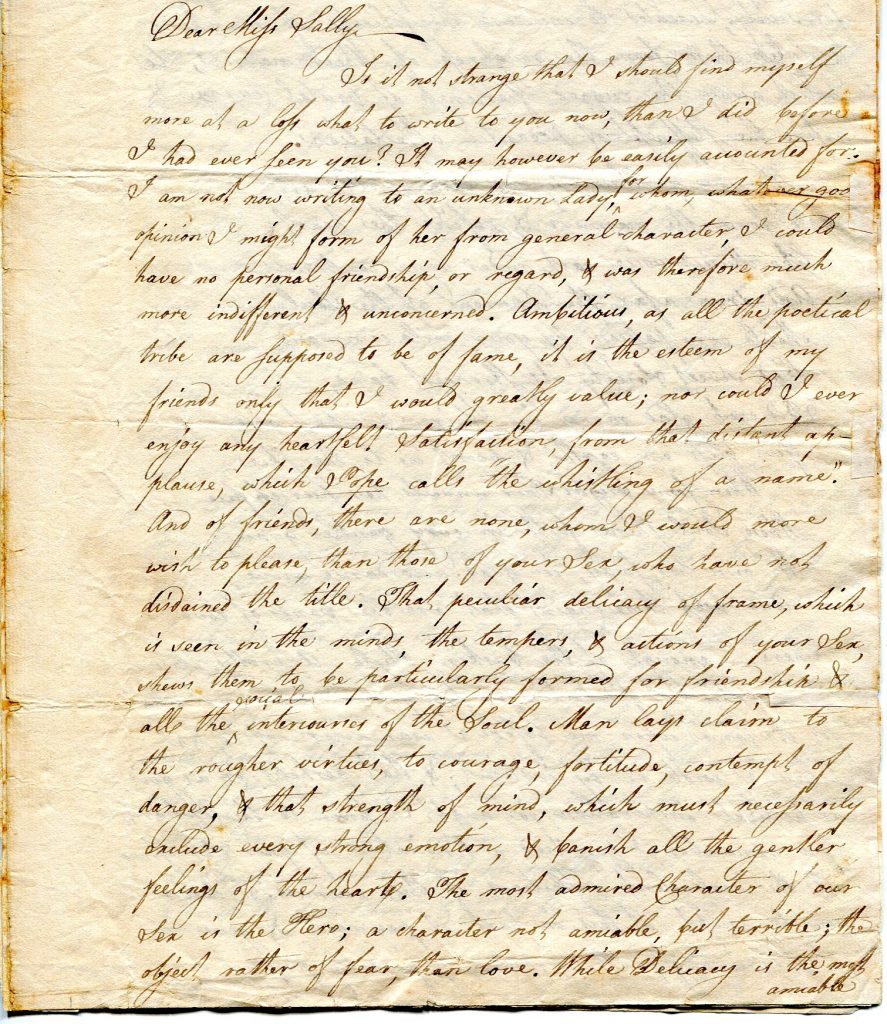 Dear Miss Sally,
Is it not strange that I should find myself
more at a loss what to write to you now, than I did before
I had ever seen you? It may however be easily accounted for.
I am not now writing to an unknown Lady, for whom, whatever goo
opinion I might form of her from general character, I could
have no personal friendship, or regard, & was therefore much
more indifferent & unconcerned. Ambitious, as all the poetical
tribe are supposed to be of fame, it is the esteem of my
friends only that I would greatly value; nor could I ever
enjoy any heartfelt Satisfaction, from that distant ap-
plause, which Pope calls "the whistling of a name".
And of friends, there are none, whom I would more
wish to please, than those of your Sex, who have not
disdained the title. That peculiar delicacy of frame, which
is seen in the minds, the tempers, & actions of your Sex,
shews them to be particularly formed for friendship &
all the social intercourses of the Soul. Man lays claim to
the rougher virtues, to courage, fortitude, contempt of
danger, & that strength of mind, which must necessarily
exclude every strong emotion, & banish all the gentler
feelings of the heart. The most admired Character of our
Sex is the Hero; a character not amiable, but terrible; the
object rather of fear, than love. While Delicacy is the most
amiable